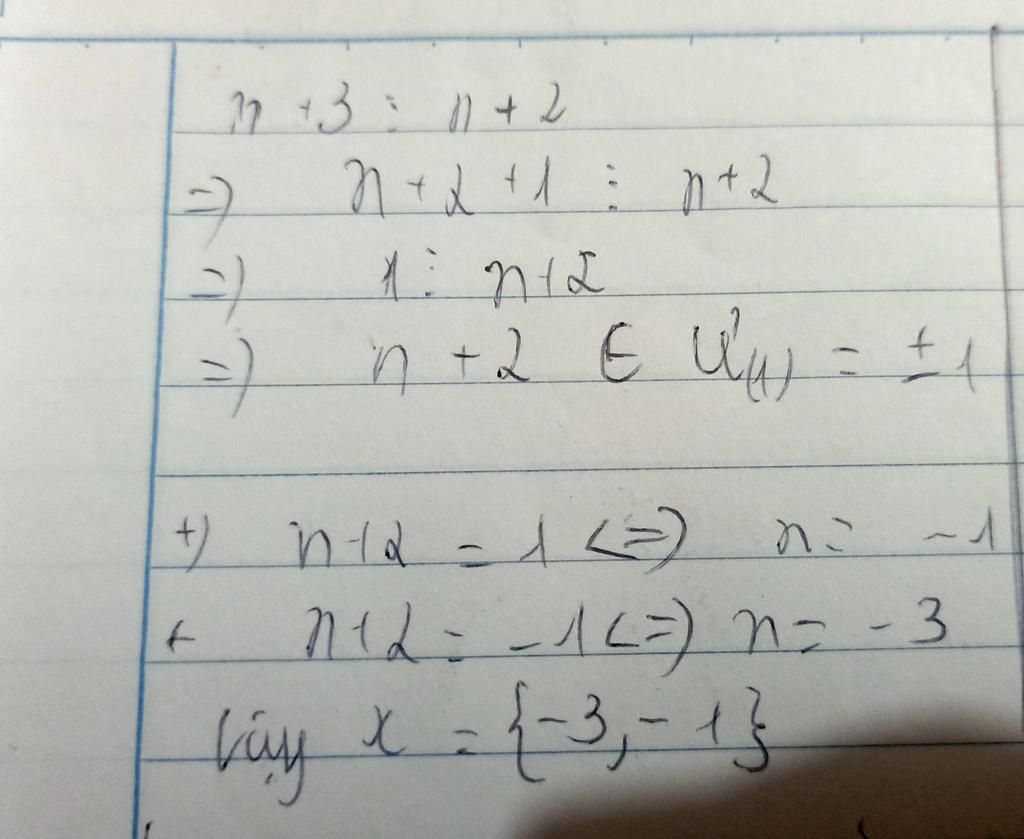 n + 3 ⋮ n + 2
=) n + 2 + 1 ⋮ n + 2
=) 1 ⋮ n + 2
=) n + 2 ∈ Ư(1) = ± 1
+) n + 2 = 1 <=) n = - 1
+ n + 2 = - 1 <=) n = - 3
Vậy x = {-3, - 1}